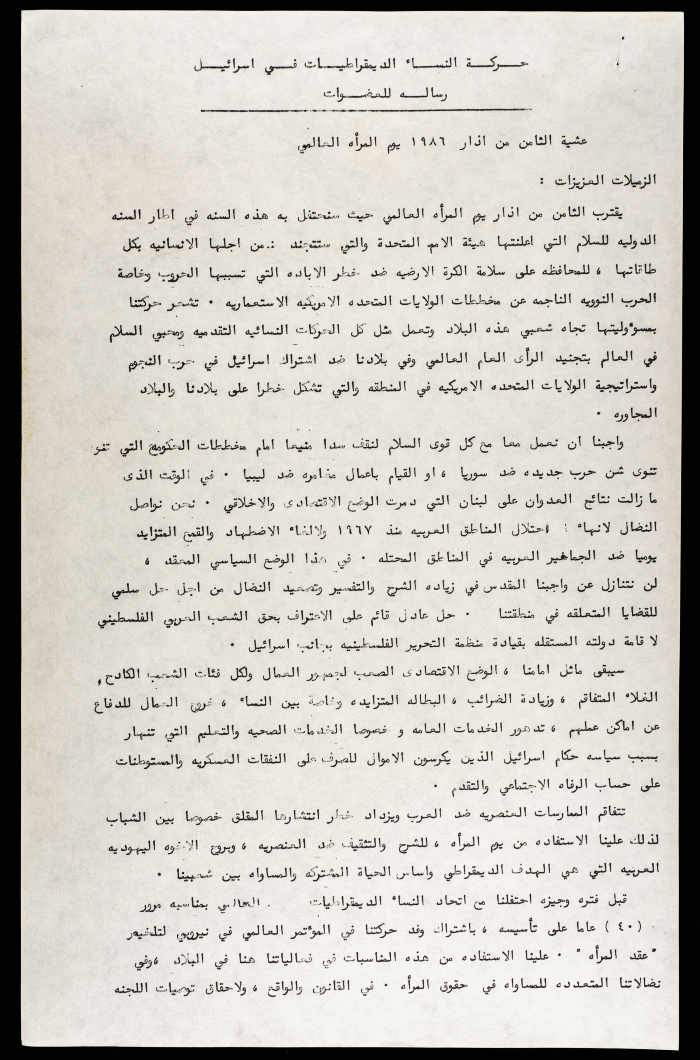 حركة النساء الديمقراطيات في اسرائيل
رساله للعضوات
عشية الثامن من اذار ١٩٨٦ يوم المرأه العالمي
الزميلات العزيزات :
يقترب الثامن من اذار يوم المرأه العالمي حيث سنحتفل به هذه السنه في اطار السنه
الدوليه للسلام التي اعلنتها هيئة الامم المتحدة والتي ستتجند من اجلها الانسانيه بكل
طاقاتها ، للمحافظه على سلامة الكرة الارضيه ضد خطر الاباده التي تسببها الحروب وخاصة
الحرب النوويه الناجمه عن مخططات الولايات المتحده الامريكيه الاستعماريه . تشعر حركتنا
بمسؤوليتها تجاه شعبي هذه البلاد وتعمل مثل كل الحركات النسائيه التقدميه ومحبي السلام
في العالم بتجنيد الرأى العام العالمي وفي بلادنا ضد اشتراك اسرائيل في حرب النجوم
واستراتيجية الولايات المتحده الامريكيه في المنطقه والتي تشكل خطرا على بلادنا والبلاد
المجاوره .
واجبنا ان نعمل معا مع كل قوى السلام لنقف سدا منيعا امام مخططات الحكومه التي
تنوى شن حرب جديده ضد سوريا ، او القيام باعمال مغامره ضد ليبيا . في الوقت الذى
ما زالت نتائج العدوان على لبنان التي دمرت الوضع الاقتصادى والاخلاقي . نحن نواصل
النضال لانهاء احتلال المناطق العربيه منذ ١٩٦٧ ولالغاء الاضطهاد والقمع المتزايد
يوميا ضد الجماهير العربيه في المناطق المحتله . في هذا الوضع السياسي المعقد ،
لن نتنازل عن واجبنا المقدس في زياده الشرح والتفسير وتصعيد النضال من اجل حل سلمي
للقضايا المتعلقه في منطقتنا . حل عادل قائم على الاعتراف بحق الشعب العربي الفلسطيني
لا قامة دولته المستقله بقيادة منظمة التحرير الفلسطينيه بجانب اسرائيل .
سيبقى ماثل امامنا ، الوضع الاقتصادى الصعب لجمهور العمال ولكل فئات الشعب الكادح ,
الغلاء المتفاقم ، وزيادة الضرائب ، البطاله المتزايده وخاصة بين النساء ، خروج العمال للدفاع
عن اماكن عملهم ، تدهور الخدمات العامه و خصوصا الخدمات الصحيه والتعليم التي تنهار
بسبب سياسه حكام اسرائيل الذين يكرسون الاموال للصرف على النفقات العسكريه والمستوطنات
على حساب الرفاه الاجتماعي والتقدم .
تتفاقم الممارسات العنصريه ضد العرب ويزداد خطر انتشارها المقلق خصوصا بين الشباب
لذلك علينا الاستفاده من يوم المرأه ، للشرح والتثقيف ضد العنصريه ، وبروح الاخوه اليهوديه
العربيه التي هي الهدف الديمقراطي واساس الحياة المشتركه والمساواه بين شعبينا .
قبل فتره وجيزه احتفلنا مع اتحاد النساء الديمقراطيات العالمي بمناسبه مرور
( ٤٠ ) عاما على تأسيسه ، باشتراك وفد حركتنا في المؤتمر العالمي في نيروبي لتلخيص
"عقد المرأه " . علينا الاستفاده من هذه المناسبات في فعالياتنا هنا في البلاد ، وفي
نضالاتنا المتعدده للمساواه في حقوق المرأه . في القانون والواقع ، ولاحقاق توصيات اللجنه